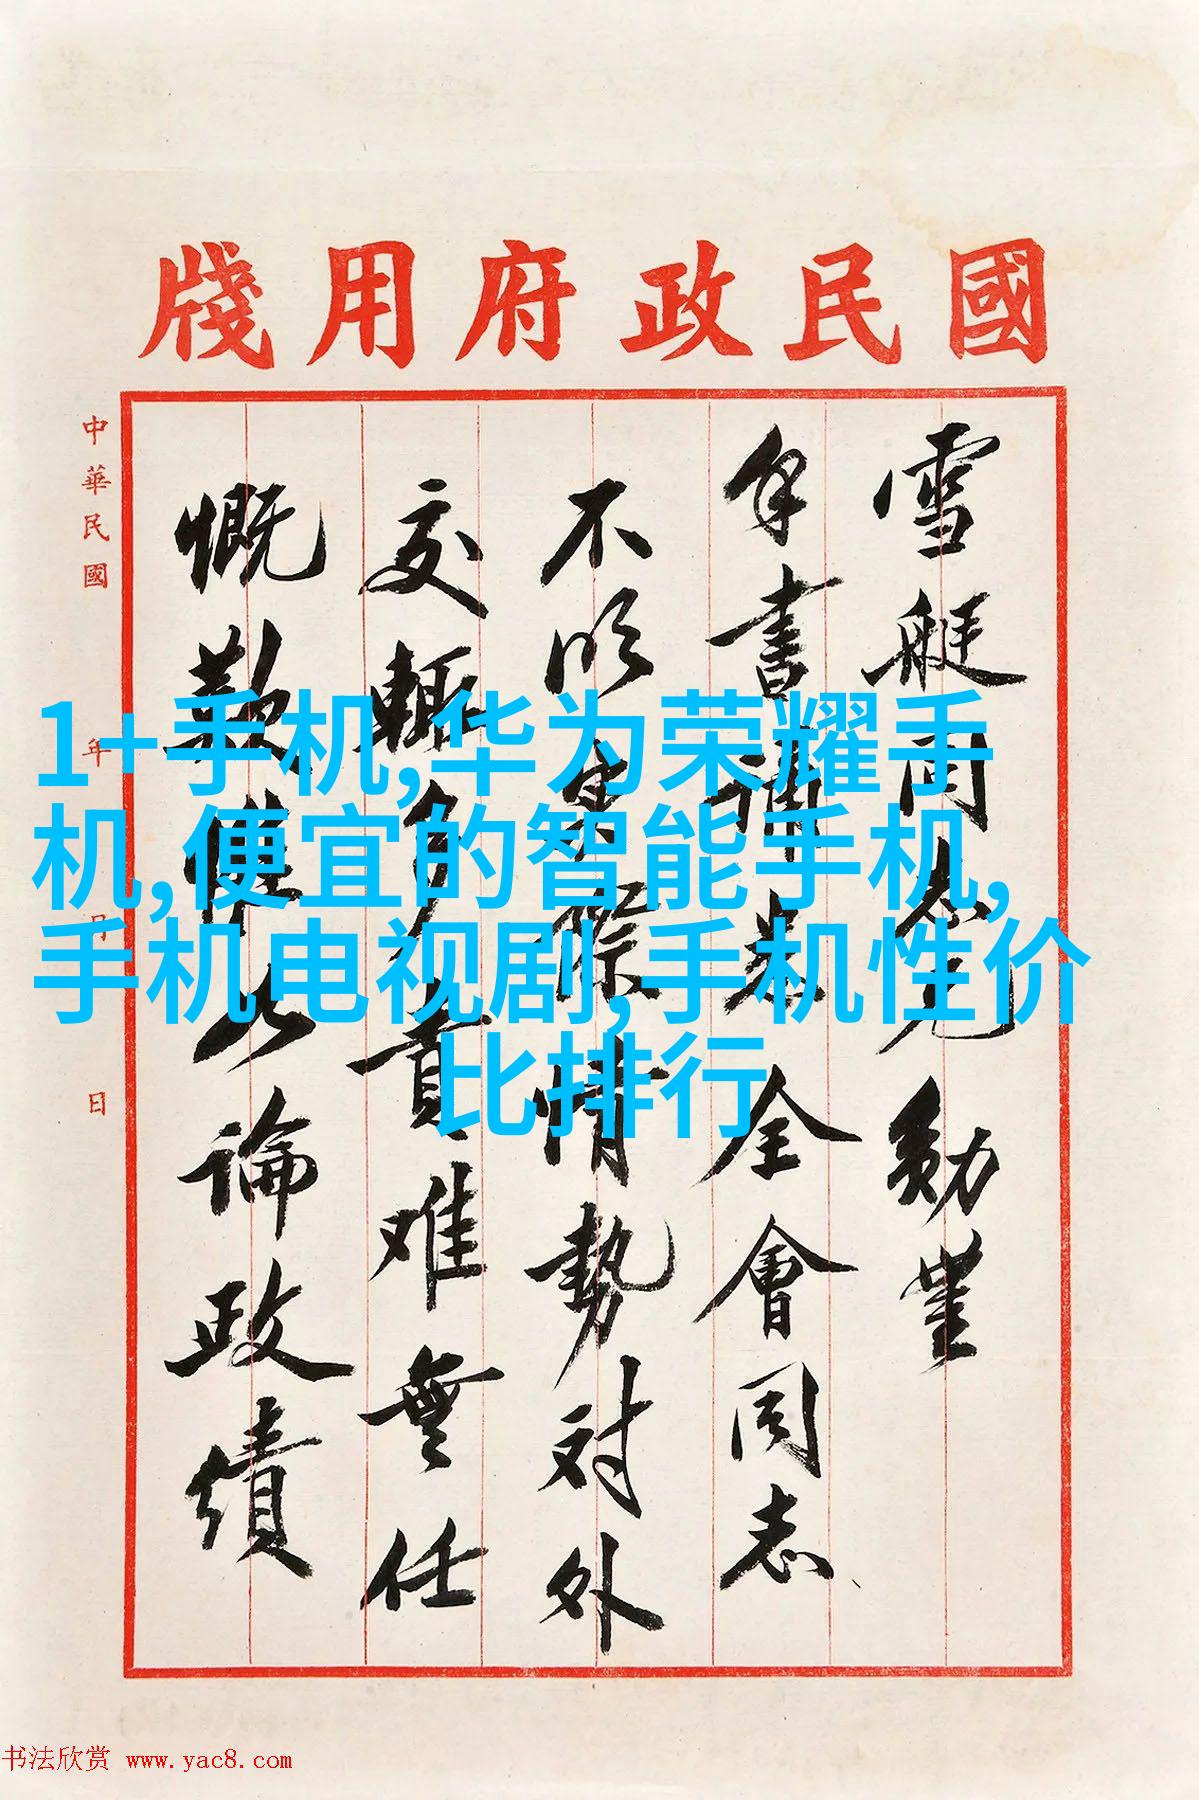 國民政府用牋
雪艇同志兄勛
手書誦悉全會同志
不明實際情勢对外
交輒多責难無任
慨歎惟論政績
中華民國 年 月 日
1+手机,华为荣耀手
机,便宜的智能手机,
手机电视剧,手机性价
比排行
书法欣赏 www.yac8.com